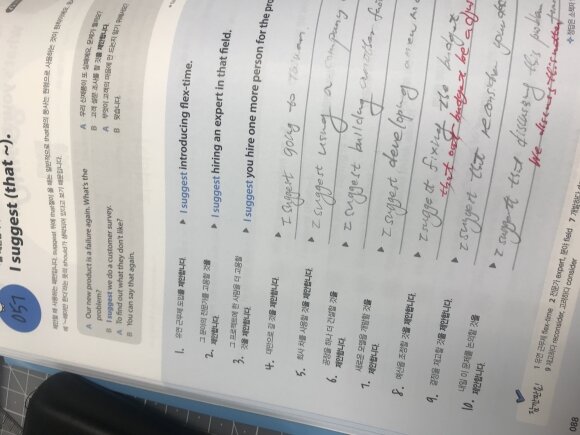 051
I suggest (that ~).
A Our new product is a failure again. What's the
problem?
B I suggest we do a customer survey.
A To find out what they don't like?
B You can say that again.
A 우리 신제품이 또 실패예요. 문제가 뭘까요?
B 고객 설문 조사를 할 것을 제안합니다.
B 맞습니다.
1. 유연 근무제 도입을 제안합니다.
▶ I suggest introducing flex-time.
2. 그 분야의 전문가를 고용할 것을
제안합니다.
▶ I suggest hiring an expert in that field.
3. 그 프로젝트에 한 사람을 더 고용할
것을 제안합니다.
▶ I suggest you hire one more person for the pro
4. 대만으로 갈 것을 제안합니다.
▶ I suggest going to Taiwan.
5. 회사 차를 사용할 것을 제안합니다.
▶ I suggest using a company
6. 공장을 하나 더 건설할 것을
제안합니다.
▶ I suggest building another fac
7. 새로운 모델을 개발할 것을
제안합니다.
▶ I suggest developing a new mo
8. 예산을 조정할 것을 제안합니다.
▶ I suggest fixing the budget
that our budget be adju
9. 결정을 재고할 것을 제안합니다.
▶ I suggest that reconsider your de
10. 내일 이 문제를 논의할 것을
제안합니다.
▶ I suggest that discussing this problem
we discuss this matter tomo
1 유연 근무제 flex-time 2 전문가 expert, 분야 field 7 개발하다
9 재고하다 reconsider, 고려하다 consider
088